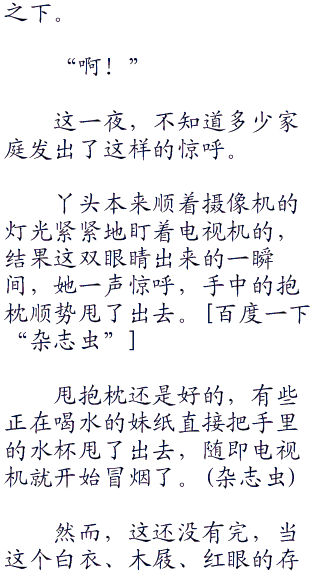 之下。
“啊！”
这一夜，不知道多少家
庭发出了这样的惊呼。
丫头本来顺着摄像机的
灯光紧紧地盯着电视机的，
结果这双眼睛出来的一瞬
间，她一声惊呼，手中的抱
枕顺势甩了出去。[百度一下
“杂志虫”]
甩抱枕还是好的，有些
正在喝水的妹纸直接把手里
的水杯甩了出去，随即电视
机就开始冒烟了。(杂志虫)
然而，这还没有完，当
这个白衣、木屐、红眼的存